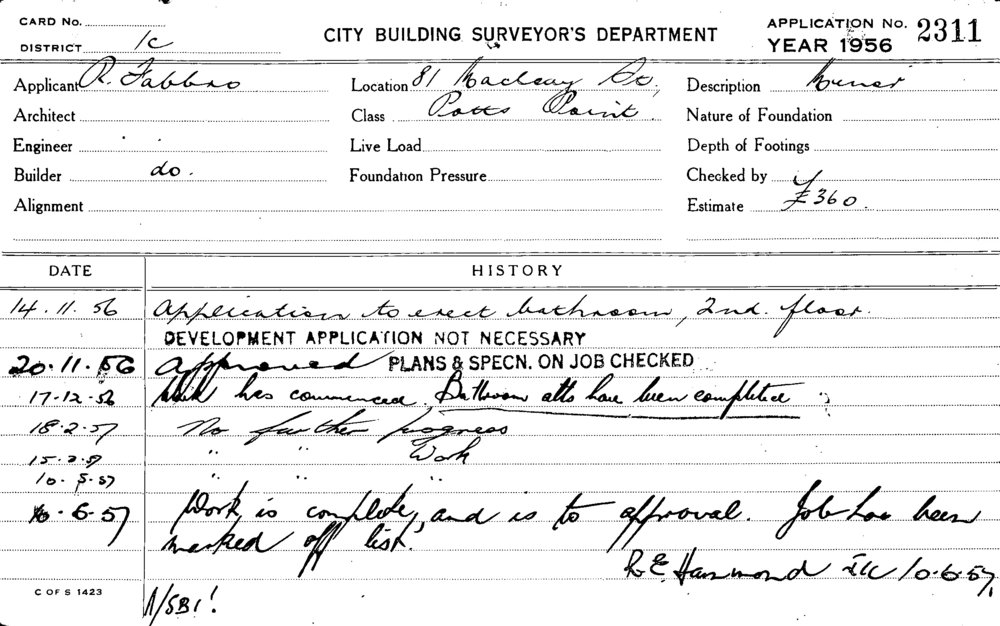 CARD No.
DISTRICT 1c
CITY BUILDING SURVEYOR'S DEPARTMENT
APPLICATION No. 2311
YEAR 1956
Applicant R. Fabbro
Location 81 Macleay St.,
Description Minor
Architect
Class Potts Point.
Nature of Foundation
Engineer
Live Load
Depth of Footings
Builder do.
Foundation Pressure
Checked by
Alignment
Estimate £360.
DATE
HISTORY
14.11.56 Application to erect bathroom, 2nd. floor.
DEVELOPMENT APPLICATION NOT NECESSARY
20.11.56 Approved PLANS & SPECN. ON JOB CHECKED
17-12-56 Work has commenced. Bathroom alts have been completed
18.2.57 No further progress
15.3.57 " " Work
10.5.57 " " "
10.6.57 Work is complete, and is to approval. Job has been
marked off list.
R.E. Hammond 10.6.57,
C OF S 1423
1/SB1!